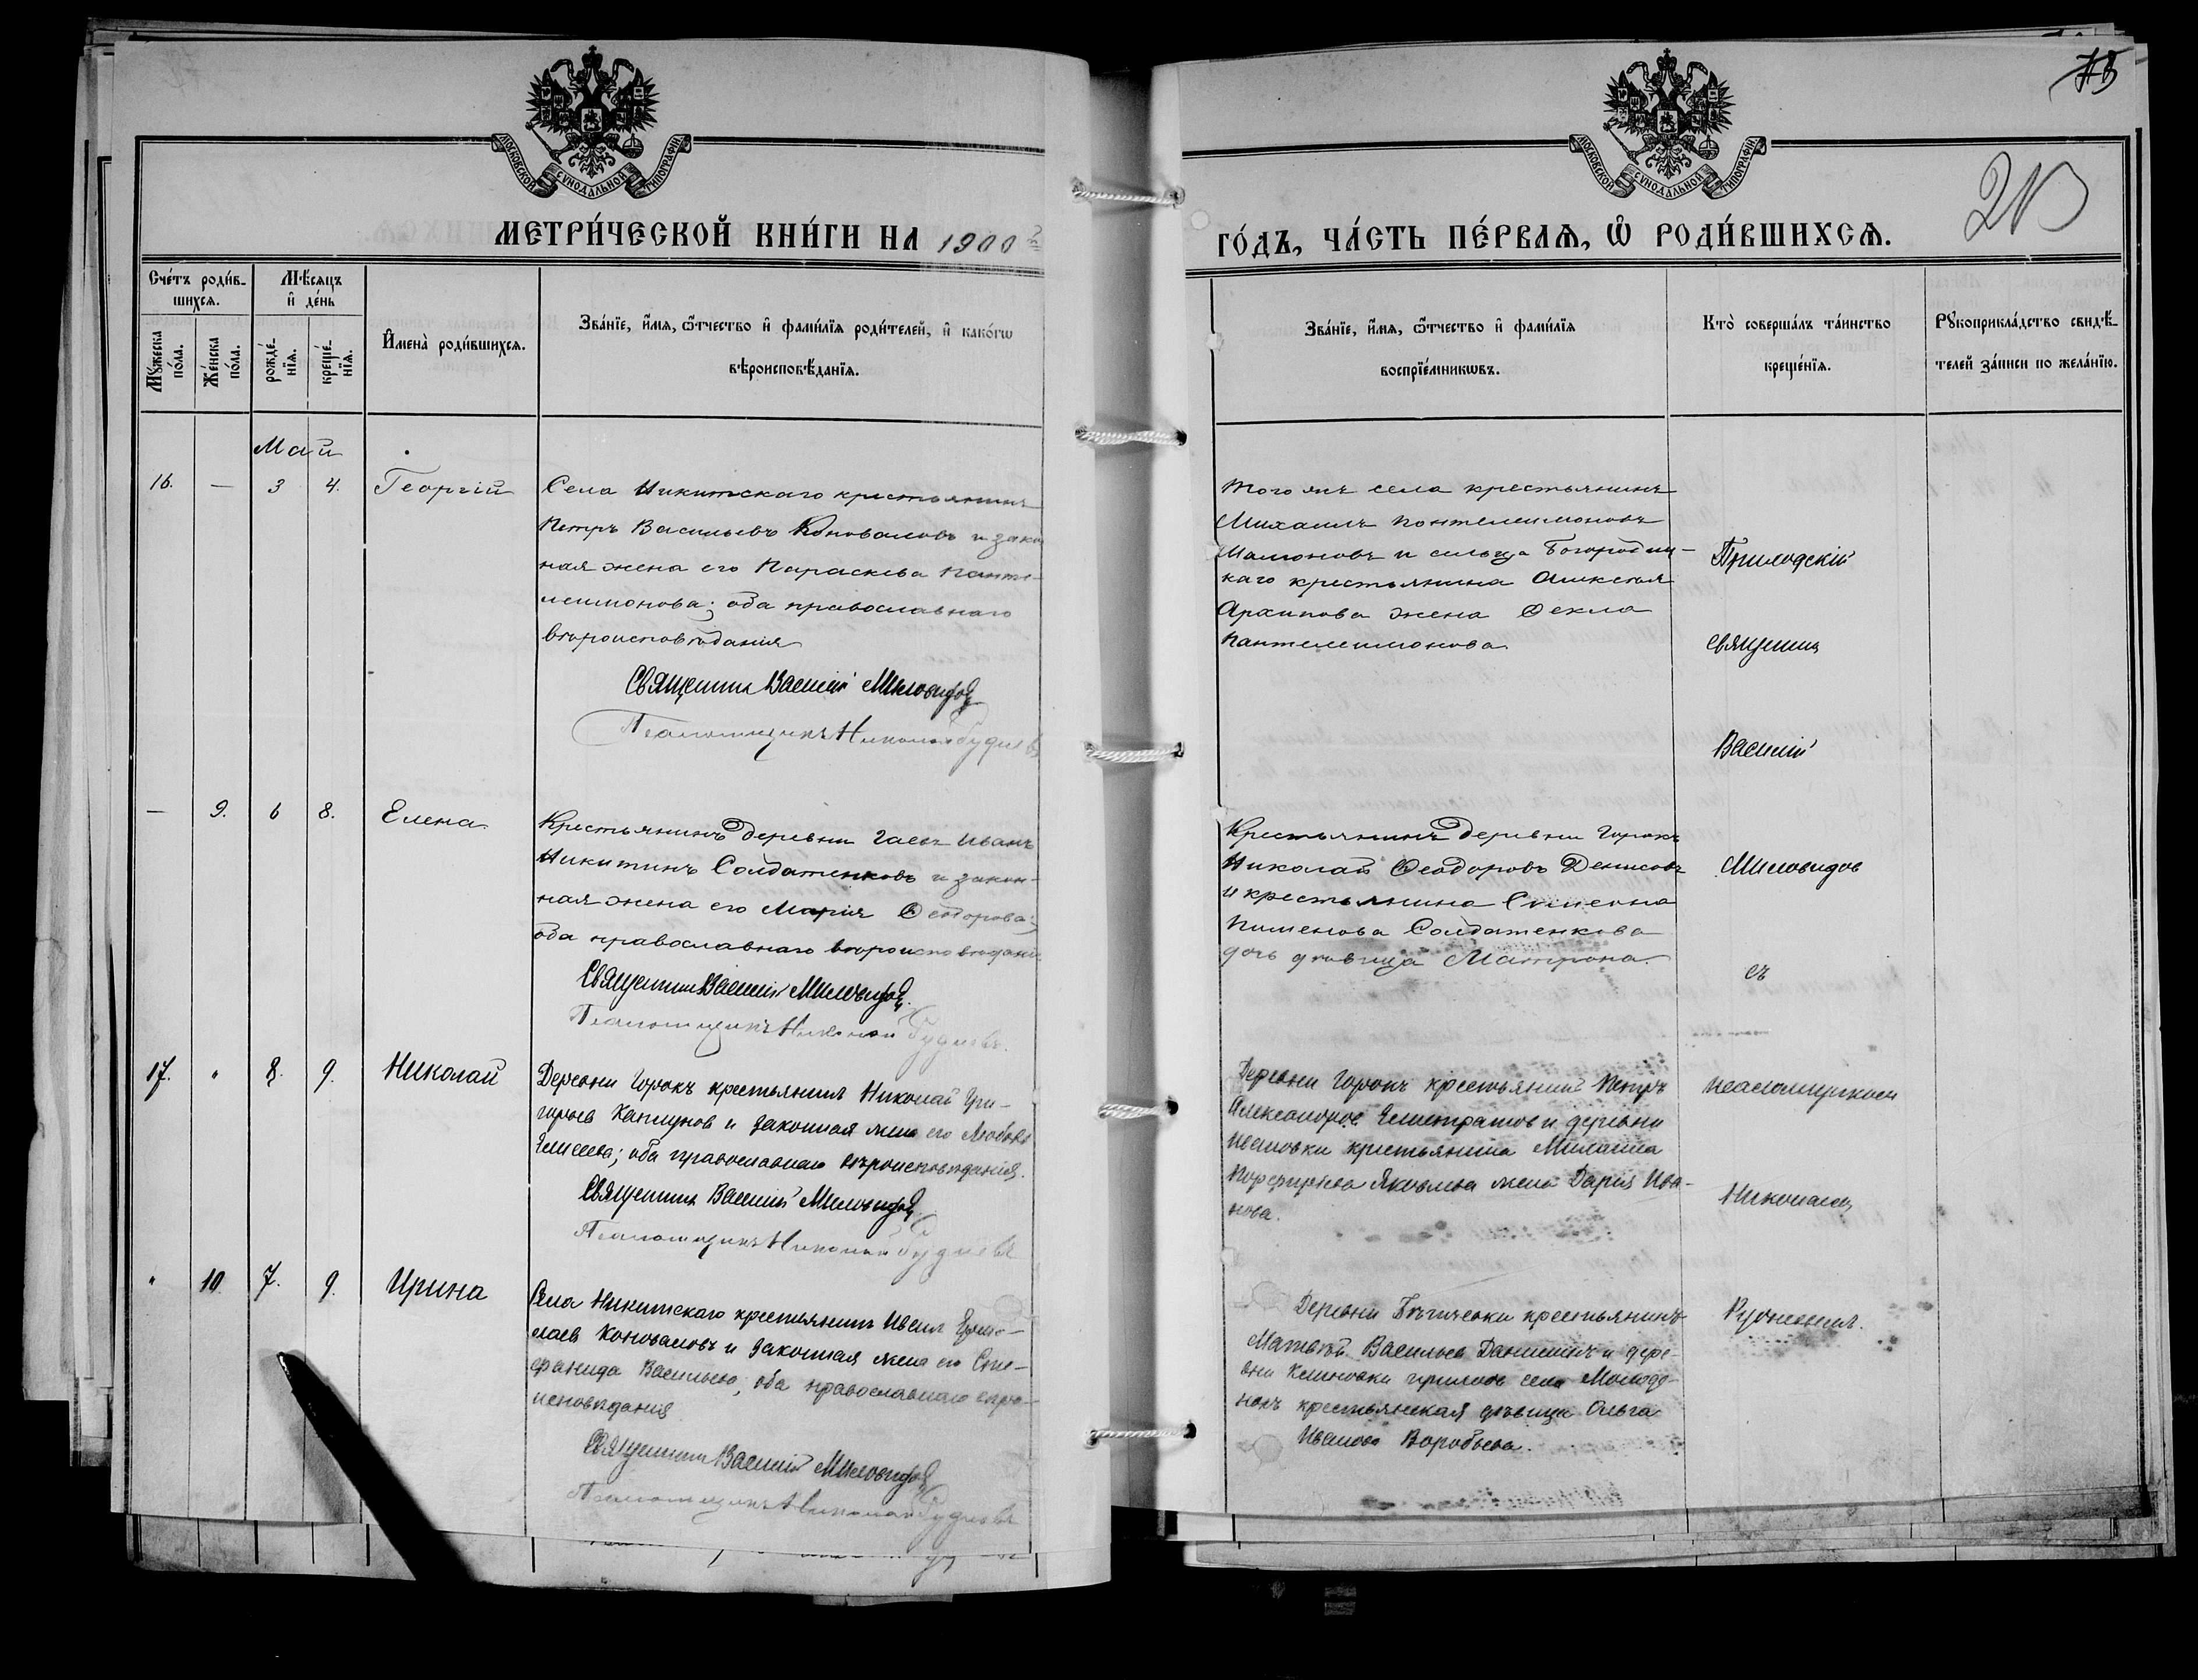 75
213
МОСКОВСКОЙ СѴНОДАЛЬНОЙ ТИПОГРАФІИ
МОСКОВСКОЙ СѴНОДАЛЬНОЙ ТИПОГРАФІИ
МЕТРИ́ЧЕСКОЙ КНИ́ГИ НА 1900 й
ГО́ДЪ, ЧА́СТЬ ПЕ́РВАѦ, Ѡ РОДИ́ВШИХСѦ.
Сче́тъ роди́в-
шихсѧ.
Мꙋжеска по́ла.
Же́нска по́ла.
Мѣ́сѧцъ
и де́нь
рожде́-
нїѧ.
креще́-
нїѧ.
Имена̀ роди́вшихсѧ.
Зва́нїе, и́мѧ, ѻ́тчество и фами́лїѧ роди́телей, и како́гѡ
вѣроисповѣ́данїѧ.
Зва́нїе, и́мѧ, ѻ́тчество и фами́лїѧ
воспрїе́мникѡвъ.
Кто̀ соверша́лъ та́инство
креще́нїѧ.
Рꙋкоприкла́дство свидѣ́-
телей за́писи по жела́нїю.
Май
16. — 3 4. Георгій
Села Никитскаго крестьянинъ
Петръ Васильевъ Коноваловъ и зако
ная жена его Параскева Панте-
леимонова; оба православнаго
вѣроисповѣданія
Священник Василій Миловидов
Псаломщикъ Николай
Того же села крестьянинъ
Михаилъ Пантелеимоновъ
Мамоновъ и сельца Богородиц-
каго крестьянина Алексея
Архипова жена Ѳекла
Пантелеимонова
— 9. 6 8. Елена
Крестьянинъ деревни Гаевъ Иванъ
Никитинъ Солдатенковъ и закон-
ная жена его Марія Ѳедорова;
оба православнаго вѣроисповѣдані
Священник Василій Миловидов
Псаломщикъ Николай
Крестьянинъ деревни Горокъ
Николай Ѳеодоровъ Денисовъ
и крестьянина Симеона
Пименова Солдатенкова
дочь девица Матрона.
17. " 8. 9. Николай
Деревни Горокъ крестьянинъ Николай Гри-
горьев и законная жена его Любовь
Елисеева; оба православнаго вѣроисповѣданія.
Священник Василій Миловидов
Псаломщикъ Николай
Деревни Горокъ крестьянинъ Петръ
Александров Елистратов и деревни
Ивановки крестьянина
Порфирьева Яковлева жена Дарія Ива-
нова.
" 10. 7. 9. Ирина
Села Никитскаго крестьянинъ Иванъ Ермо-
лаев Коноваловъ и законная жена его Сте-
фанида Васильева; оба православнаго вѣро-
исповѣданія
Священник Василій Миловидов
Псаломщикъ Николай
Деревни крестьянинъ
Матвѣй Васильев Данилинъ и дере-
вни Климовки прихода села Молодё-
нокъ крестьянская дѣвица Ольга
Иванова Воробьева.
Приходскій
священник
Василій
Миловидов
съ
псаломщиком
Николаем